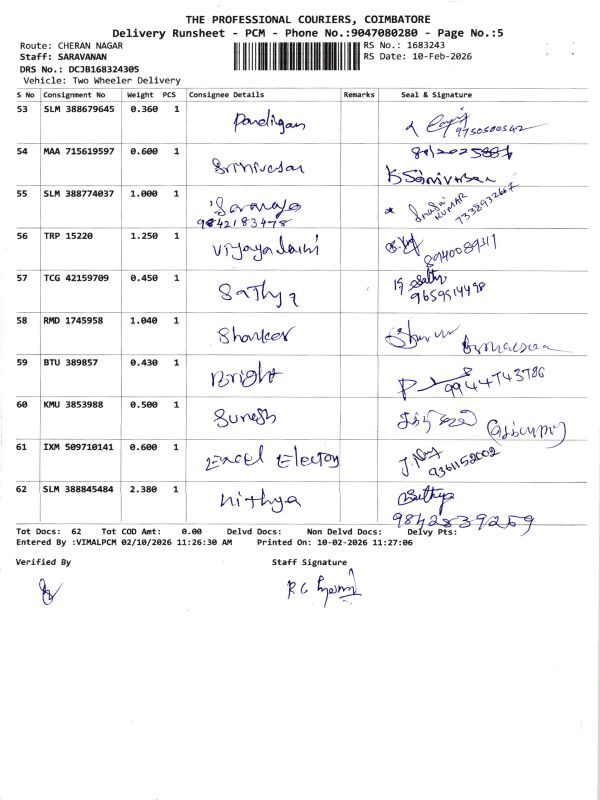 THE PROFESSIONAL COURIERS, COIMBATORE
Delivery Runsheet - PCM - Phone No.:9047080280 - Page No.:5
Route: CHERAN NAGAR
RS No.: 1683243
Staff: SARAVANAN
RS Date: 10-Feb-2026
DRS No.: DCJB168324305
Vehicle: Two Wheeler Delivery
S No Consignment No Weight PCS Consignee Details Remarks Seal & Signature
53 SLM 388679645 0.360 1 Pandigan 9750500542
54 MAA 715619597 0.600 1 Srinivasan
K Srinivasan
55 SLM 388774037 1.000 1 Saranya KUMAR
9842183478 7338932667
56 TRP 15220 1.250 1 Vijayalaxmi
57 TCG 42159709 0.450 1 Sathya 9659514498
58 RMD 1745958 1.040 1 Shanker
59 BTU 389857 0.430 1 Bright 9944743786
60 KMU 3853988 0.500 1 Suresh
61 IXM 509710141 0.600 1 Excel 9361152002
62 SLM 388845484 2.380 1 Nithya
9842839259
Tot Docs: 62 Tot COD Amt: 0.00 Delvd Docs: Non Delvd Docs: Delvy Pts:
Entered By :VIMALPCM 02/10/2026 11:26:30 AM Printed On: 10-02-2026 11:27:06
Verified By Staff Signature